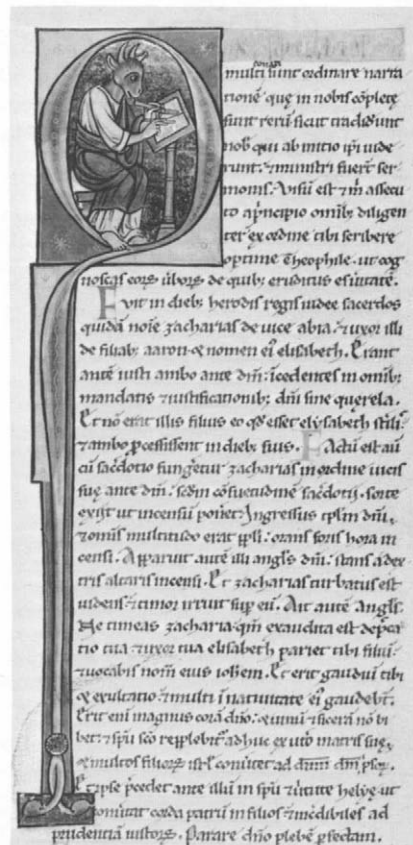 Q
conati
multi sunt ordinare narra
tionē quę in nobis cōplete
sunt rerū sicut tradiderūt
nob qui ab initio ipi uide
runt: & ministri fuerˉt ser
monis. Uisū est & m assecu
to a pncipio omib; diligen
ter ex ordine tibi scribere
optime Theophile. ut cog
noscas eorʒ ūborʒ de quib; eruditus es ūitatē.
Fvit in dieb; herodis regis iudee sacerdos
quidā noīe zacharias de uice abia. & uxor illi
de filiab; aaron & nomen ei elisabeth. Erant
autē iusti ambo ante dm̄: īcedentes in omib;
mandatis & iustificationib; dn̄i sine querela.
Et nō erat illis filius eo qđ esset elysabeth st̄ilis
& ambo p̄cessissent in dieb; suis. Factū est aū
cū sac̄dotio fungetur zacharias in ordine uicis
suę ante dm̄. sc̄dm cōsuetudinē sac̄dotij. sorte
exiit ut incensū poneret Ingressus tplm dn̄i,
& omīs multitudo erat ppli: orans foris hora in
censi. Apparuit autē illi angls dn̄i: stans a dex
tris altaris incensi. Et zacharias turbatus est
uidens: & timor irruit sup eū. Ait autē angls.
Ne timeas zacharia. qm̄ exaudita est dep̄ca
tio tua & uxor tua elisabeth pariet tibi filiū:
& uocabis nom̄ eius iohem. Et erit gaudiū tibi
& exultatio & multi ī natiuitate ei gaudebt̄.
Erit enī magnus corā dn̄o: & uinū & sicerā nō bi
bet: & spū sc̄o replebit adhuc ex ut̄o matris suę,
& multos filiorʒ isrl cōuertet ad dn̄m dm̄ ipsorʒ.
Et ipse p̄cedet ante illū in spū & ūtute helye. ut
conuertat corda patrū in filios & incdibiles ad
prudentiā iustorʒ. Parare dn̄o plebē p̄fectam.